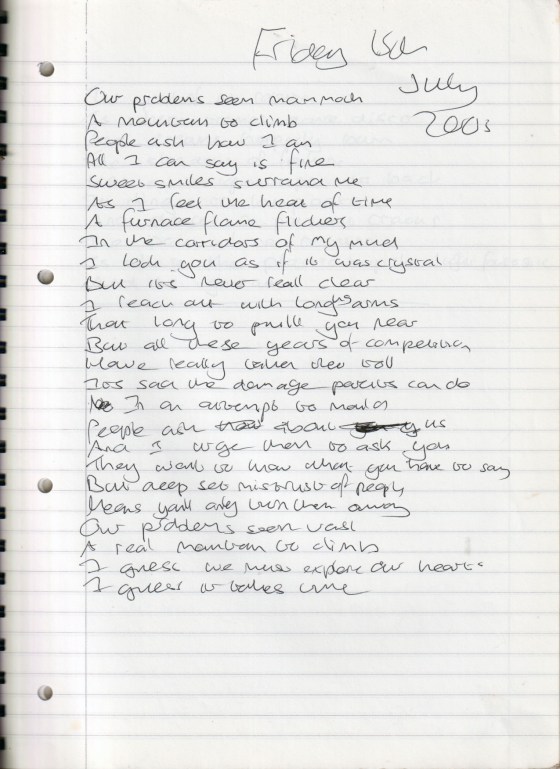 Friday
July
Our problems seem mammoth
A mountain to climb
People ask how I am
All I can say is fine
Sweet smiles surround me
As I feel the heat of time
A furnace flame flickers
In the corridors of my mind
I look you as if it was crystal
But its never reall clear
I reach out with long arms
That long to pull you near
But all these years of competition
Have really taken their toll
Its sad the damage parents can do
In an attempt to mould
People ask about us
And I urge them to ask you
They want to know what you have to say
But deep set mistrust of people
Means you'll only turn them away
Our problems seem vast
A real mountain to climb
I guess we must explore our hearts
I guess it takes time